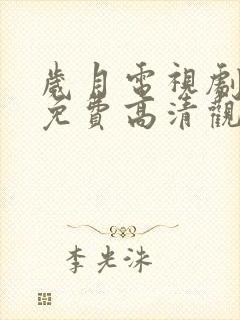 歲月電視劇
免費高清觀
李光洙